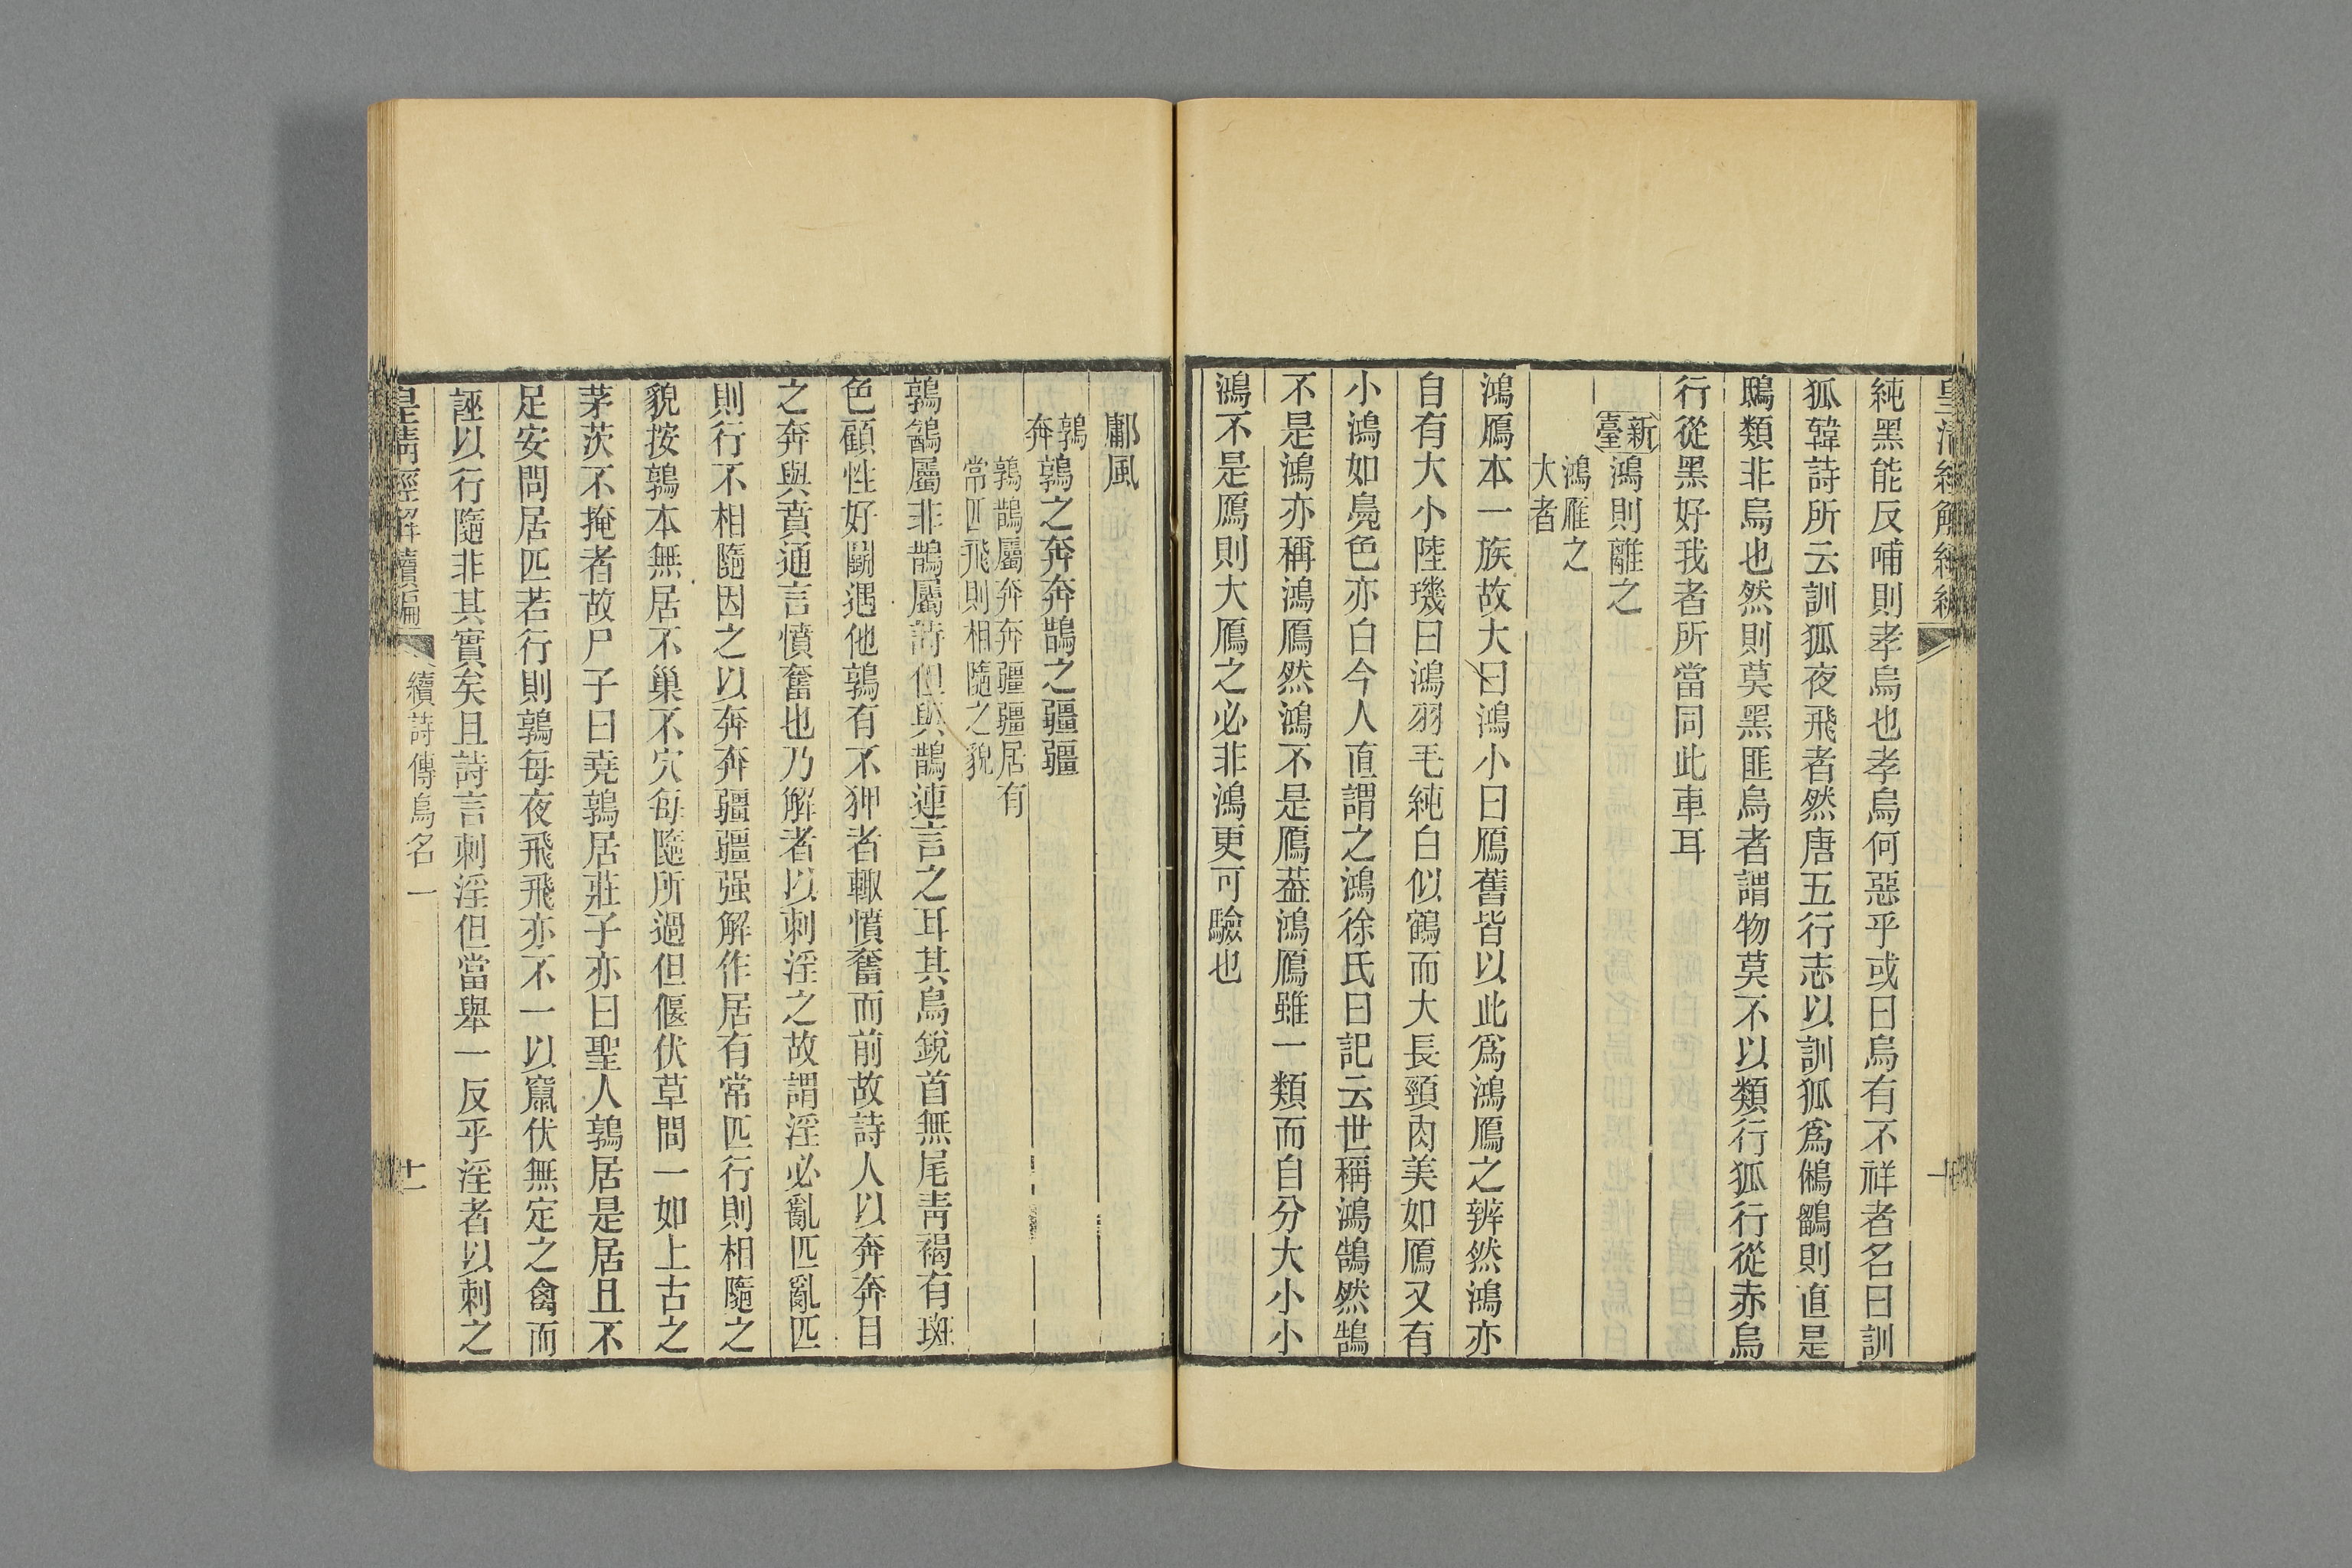 純黑能反哺則孝烏也孝烏何惡乎或曰烏有不祥者名曰訓
狐韓詩所云訓狐夜飛者然唐五行志以訓狐爲鵂鶹則直是
鴟類非烏也然則莫黑匪烏者謂物莫不以類行狐行從赤烏
行從黑好我者所當同此車耳
新臺 鴻則離之
鴻雁之
大者
鴻鴈本一族故大曰鴻小曰鴈舊皆以此爲鴻鴈之辨然鴻亦
自有大小陸璣曰鴻羽毛純白似鶴而大長頸肉美如鴈又有
小鴻如鳧色亦白今人直謂之鴻徐氏曰記云世稱鴻鵠然鵠
不是鴻亦稱鴻鴈然鴻不是鴈葢鴻鴈雖一類而自分大小小
鴻不是鴈則大鴈之必非鴻更可驗也
鄘風
鶉奔 鶉之奔奔鵲之疆疆
鶉鵲屬奔奔疆疆居有
常匹飛則相隨之貌
鶉鷂屬非鵲屬詩但與鵲連言之耳其鳥銳首無尾靑褐有斑
色顧性好鬭遇他鶉有不狎者輙憤奮而前故詩人以奔奔目
之奔與賁通言憤奮也乃解者以刺淫之故謂淫必亂匹亂匹
則行不相隨因之以奔奔疆疆强解作居有常匹行則相隨之
貌按鶉本無居不巢不穴每隨所過但偃伏草間一如上古之
茅茨不掩者故尸子曰堯鶉居莊子亦曰聖人鶉居是居且不
足安問居匹若行則鶉每夜飛飛亦不一以竄伏無定之禽而
誣以行隨非其實矣且詩言刺淫但當舉一反乎淫者以刺之
皇淸經解續編
續詩傳鳥名一
十一